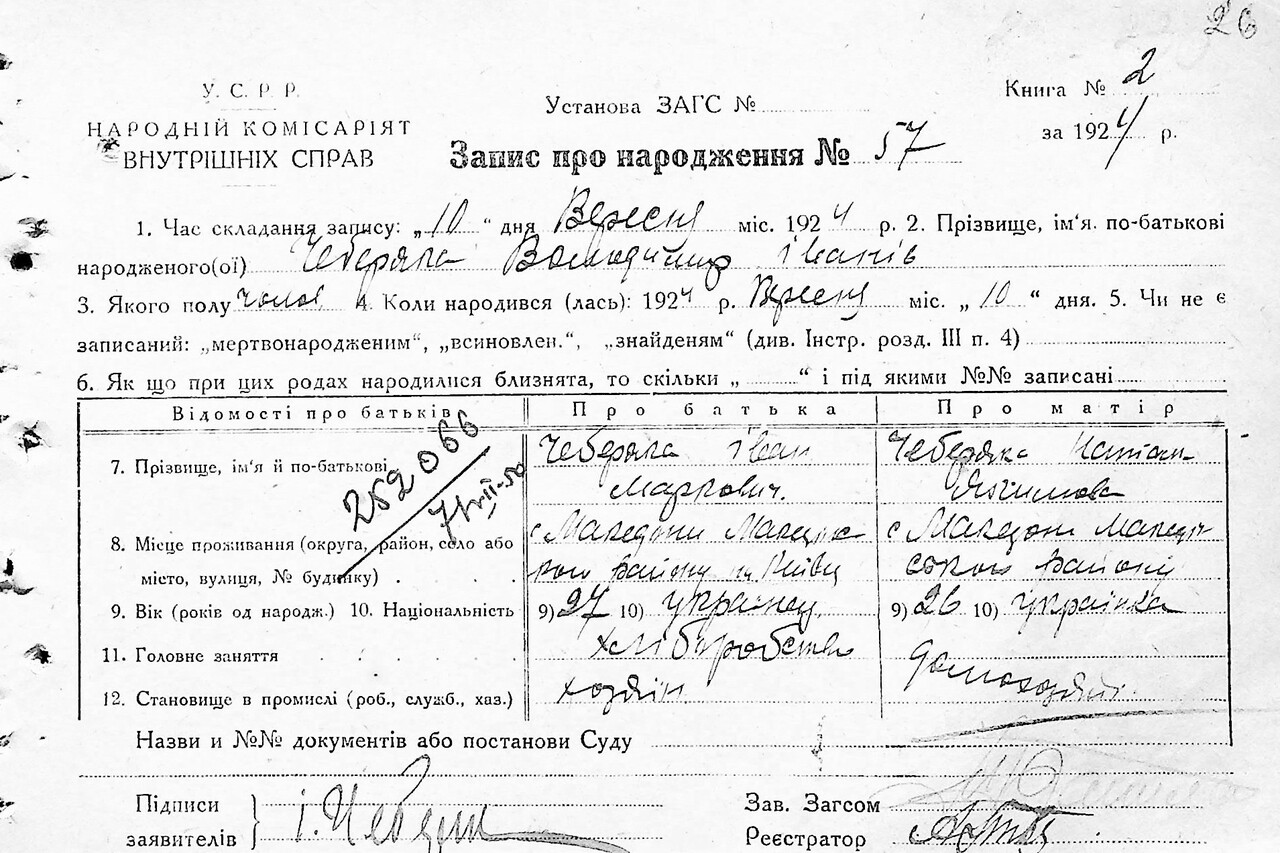 26
У. С. Р. Р.
НАРОДНІЙ КОМІСАРІЯТ
ВНУТРІШНІХ СПРАВ
Установа ЗАГС №
Книга № 2
за 1924 р.
Запис про народження № 57
1. Час складання запису: „10“ дня Вересня міс. 1924 р. 2. Прізвище, ім‘я. по-батькові
народженого(ої) Чеберяка Володимир Іванів
3. Якого полу чолов. 4. Коли народився (лась): 1924 р. Вересня міс. „10“ дня. 5. Чи не є
записаний: „мертвонародженим“, „всиновлен.“, „знайденям“ (див. Інстр. розд. III п. 4)
6. Як що при цих родах народилися близнята, то скільки „ “ і під якими №№ записані
Відомості про батьків
Про батька
Про матір
252066
7. Прізвище, ім‘я й по-батькові
Чеберяка Іван
Маркович.
Чеберяка
Якимова
8. Місце проживання (округа, район, село або
місто, вулиця, № будинку)
с Македони
с Македони
район
9. Вік (років од народж.) 10. Національність
9) 27 10) українец
9) 26 10) українка
11. Головне заняття
хліборобство
12. Становище в промислі (роб., служб., хаз.)
хозяїн
Назви и №№ документів або постанови Суду
Підписи
заявителів
І. Чеберяк
Зав. Загсом
Реєстратор